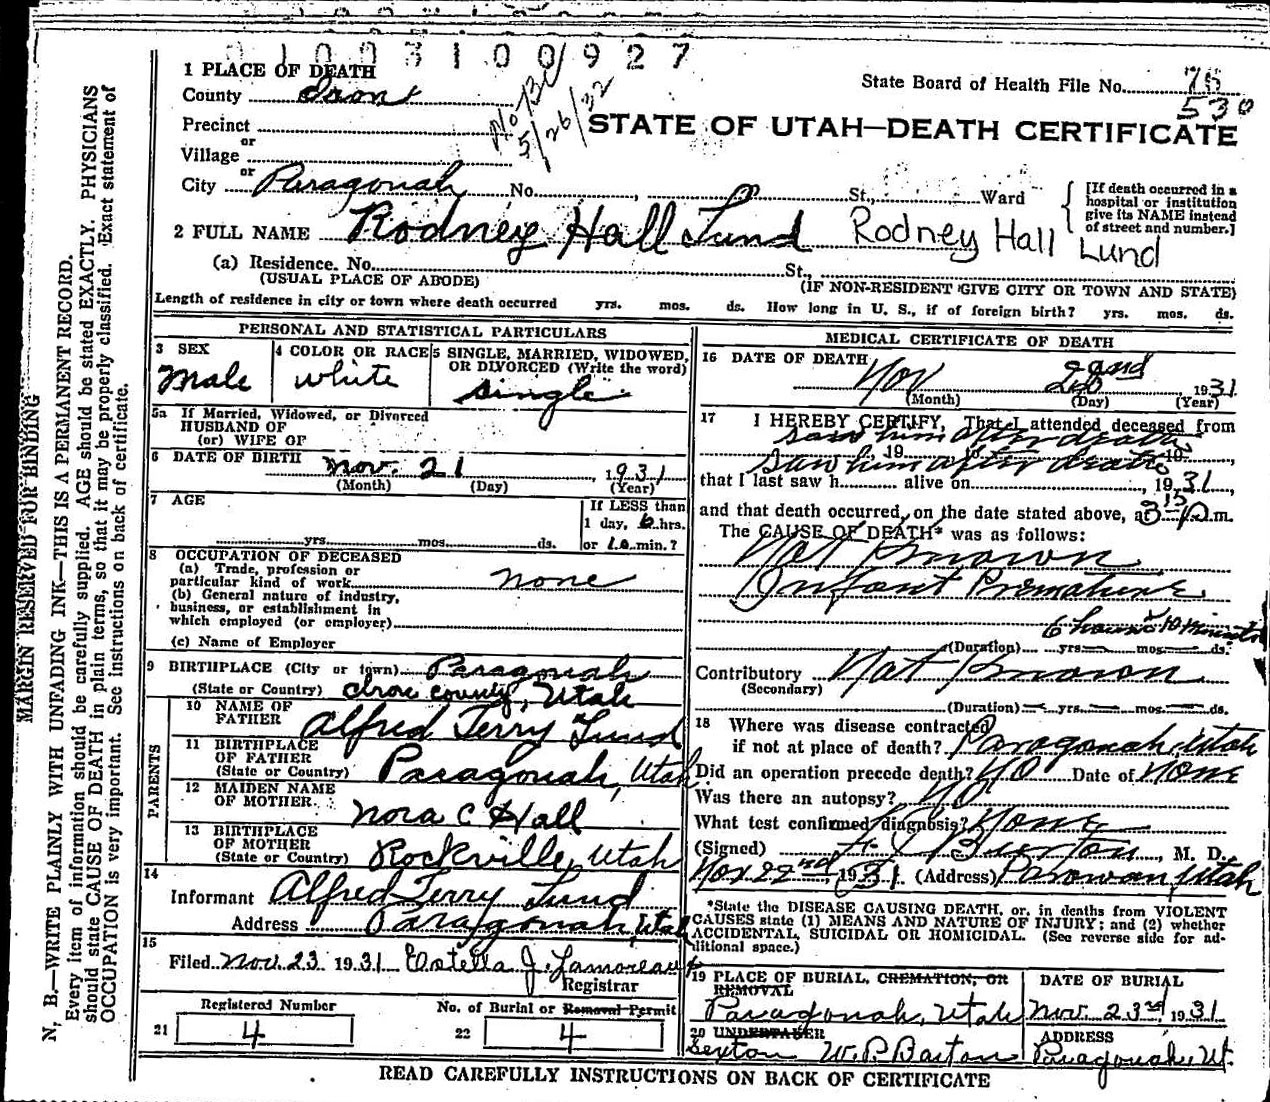 01003100927
1 PLACE OF DEATH
State Board of Health File No. 78
County Iron
530
No BC
5/26/32
Precinct
or
Village
or
STATE OF UTAH—DEATH CERTIFICATE
City Paragonah No. , St., Ward
[If death occurred in a hospital or institution give its NAME instead of street and number.]
2 FULL NAME Rodney Hall Lund Rodney Hall Lund
(a) Residence. No. St.,
(USUAL PLACE OF ABODE) (IF NON-RESIDENT GIVE CITY OR TOWN AND STATE)
Length of residence in city or town where death occurred yrs. mos. ds. How long in U. S., if of foreign birth? yrs. mos. ds.
PERSONAL AND STATISTICAL PARTICULARS
3 SEX 4 COLOR OR RACE 5 SINGLE, MARRIED, WIDOWED, OR DIVORCED (Write the word)
Male white single
5a If Married, Widowed, or Divorced
HUSBAND OF
(or) WIFE OF
6 DATE OF BIRTH Nov. 21, 1931
(Month) (Day) (Year)
7 AGE
If LESS than
1 day, 6 hrs.
yrs. mos. ds. or 10 min.?
8 OCCUPATION OF DECEASED
(a) Trade, profession or
particular kind of work none
(b) General nature of industry,
business, or establishment in
which employed (or employer)
(c) Name of Employer
9 BIRTHPLACE (City or town) Paragonah
(State or Country) Iron county, Utah
PARENTS
10 NAME OF
FATHER Alfred Terry Lund
11 BIRTHPLACE
OF FATHER
(State or Country) Paragonah, Utah
12 MAIDEN NAME
OF MOTHER Nora C Hall
13 BIRTHPLACE
OF MOTHER
(State or Country) Rockville, Utah
14
Informant Alfred Terry Lund
Address Paragonah, Utah
15
Filed Nov 23 1931 Estella J. Lamoreaux
Registrar
Registered Number No. of Burial or Removal Permit
21 4 22 4
MEDICAL CERTIFICATE OF DEATH
16 DATE OF DEATH Nov 22nd 1931
(Month) (Day) (Year)
17 I HEREBY CERTIFY, That I attended deceased from
saw him after death
, 19 , 19
saw him after death
that I last saw h alive on , 1931,
and that death occurred, on the date stated above, at 3-15 m.
The CAUSE OF DEATH* was as follows:
Not Known
Infant Premature
6 hours 10 minutes
(Duration) yrs. mos. ds.
Contributory Not Known
(Secondary)
(Duration) yrs. mos. ds.
18 Where was disease contracted
if not at place of death? Paragonah, Utah
Did an operation precede death? No Date of None
Was there an autopsy? No
What test confirmed diagnosis? None
(Signed) Burton, M. D.
Nov 22nd, 1931 (Address) Parowan, Utah
*State the DISEASE CAUSING DEATH, or, in deaths from VIOLENT
CAUSES state (1) MEANS AND NATURE OF INJURY; and (2) whether
ACCIDENTAL, SUICIDAL OR HOMICIDAL. (See reverse side for additional space.)
19 PLACE OF BURIAL, CREMATION, OR REMOVAL DATE OF BURIAL
Paragonah, Utah Nov. 23rd 1931
20 UNDERTAKER ADDRESS
Sexton W. P. Barton Paragonah Ut.
READ CAREFULLY INSTRUCTIONS ON BACK OF CERTIFICATE
MARGIN RESERVED FOR BINDING
N. B.—WRITE PLAINLY WITH UNFADING INK—THIS IS A PERMANENT RECORD.
Every item of information should be carefully supplied. AGE should be stated EXACTLY. PHYSICIANS
should state CAUSE OF DEATH in plain terms, so that it may be properly classified. Exact statement of
OCCUPATION is very important. See instructions on back of certificate.